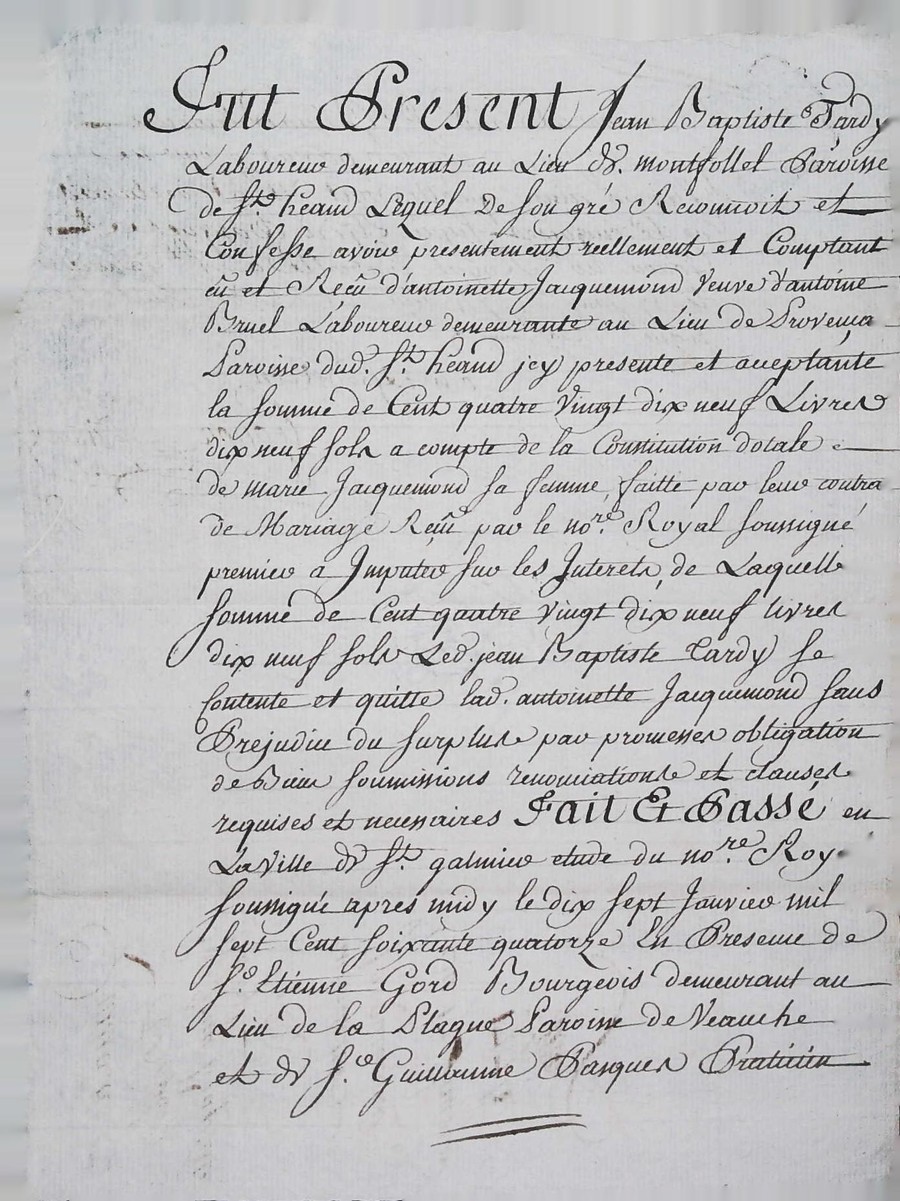 Fut Present Jean Baptiste Tardy
Laboureur demeurant au Lieu de montfollet Paroisse
de St. heand Lequel De son gré Reconnoit et
Confesse avoir presentement reellement et Comptant
eû et Reçû d'antoinette Jacquemond veuve d'antoine
Bruel Laboureur demeurante au Lieu de
Paroisse dud. St. heand jcy presente et acceptante
la somme de Cent quatre vingt dix neuf Livres
dix neuf sols a compte de la Constitution dotale
de marie Jacquemond sa femme, faitte par leur contra
de Mariage Reçû par le nore. Royal soussigné
premier a Imputer sur les Interets, de Laquelle
somme de Cent quatre vingt dix neuf livres
dix neuf sols Led. jean Baptiste Tardy se
Contente et quitte lad. antoinette Jacquemond sans
Prejudice du surplus par promesses obligation
de Biens soumissions renonciations et clauses
requises et necessaires Fait Et Passé en
La Ville de St. galmier etude du nore. Roy.
soussigné apres midy le dix sept Janvier mil
sept Cent soixante quatorze En Presence de
Sr. Etienne Gord Bourgeois demeurant au
Lieu de la Plagne Paroisse de Veauche
et de Sr. Guillaume Pasques Praticien